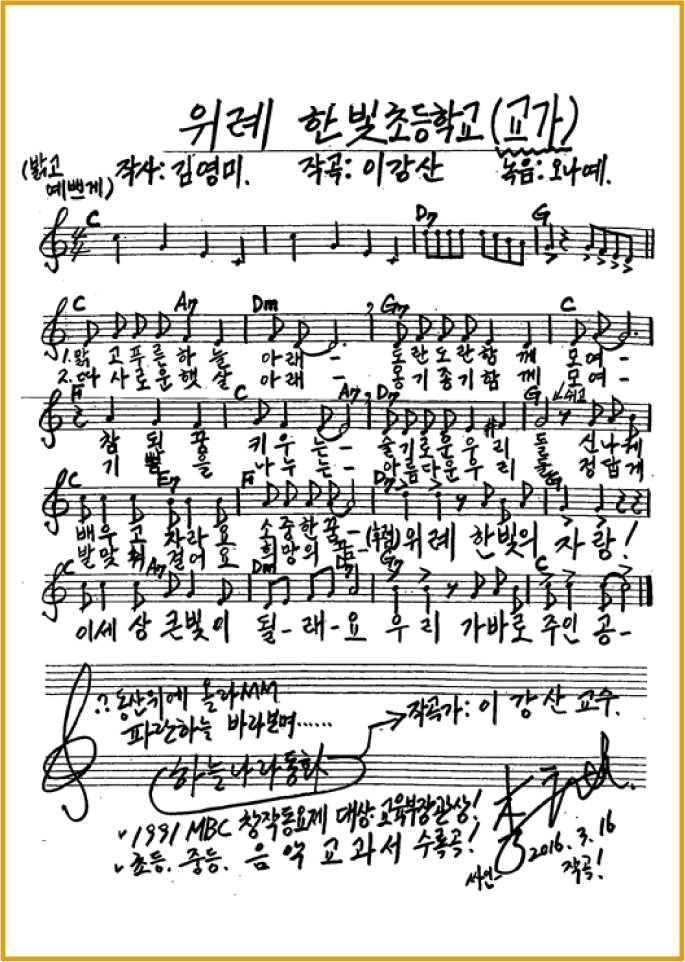 위례 한빛초등학교(교가)
(밝고 예쁘게) 작사:김영미. 작곡:이강산 녹음:오나예.
C D7 G
C A7 Dm G7 C
1.맑 고푸른하 늘 아래 - 도란도란함 께 모여 -
2.따 사로운햇 살 아래 - 옹기종기함 께 모여 -
F C A7 D7 G 쉬고
참 된 꿈 키 우 는- 슬기로운우 리 들 신나게
기 쁨 을 나 누 는- 아름다운우 리 들 정답게
C E7 F D7 G
배우 고 자라 요 소중한꿈- 위례 한빛의 자랑!
발맞 춰 걸어 요 희망의 꿈-
C A7 Dm D7 G7 C
이세 상 큰빛 이 될-래-요 우리 가바로 주인 공-
동산위에 올라MM
파란하늘 바라보며......
작곡가:이강산 교수.
하늘나라동화
1991 MBC 창작동요제 대상·교육부장관상!
초등. 중등. 음악교과서 수록곡!
싸인- 2016. 3. 16
작곡!